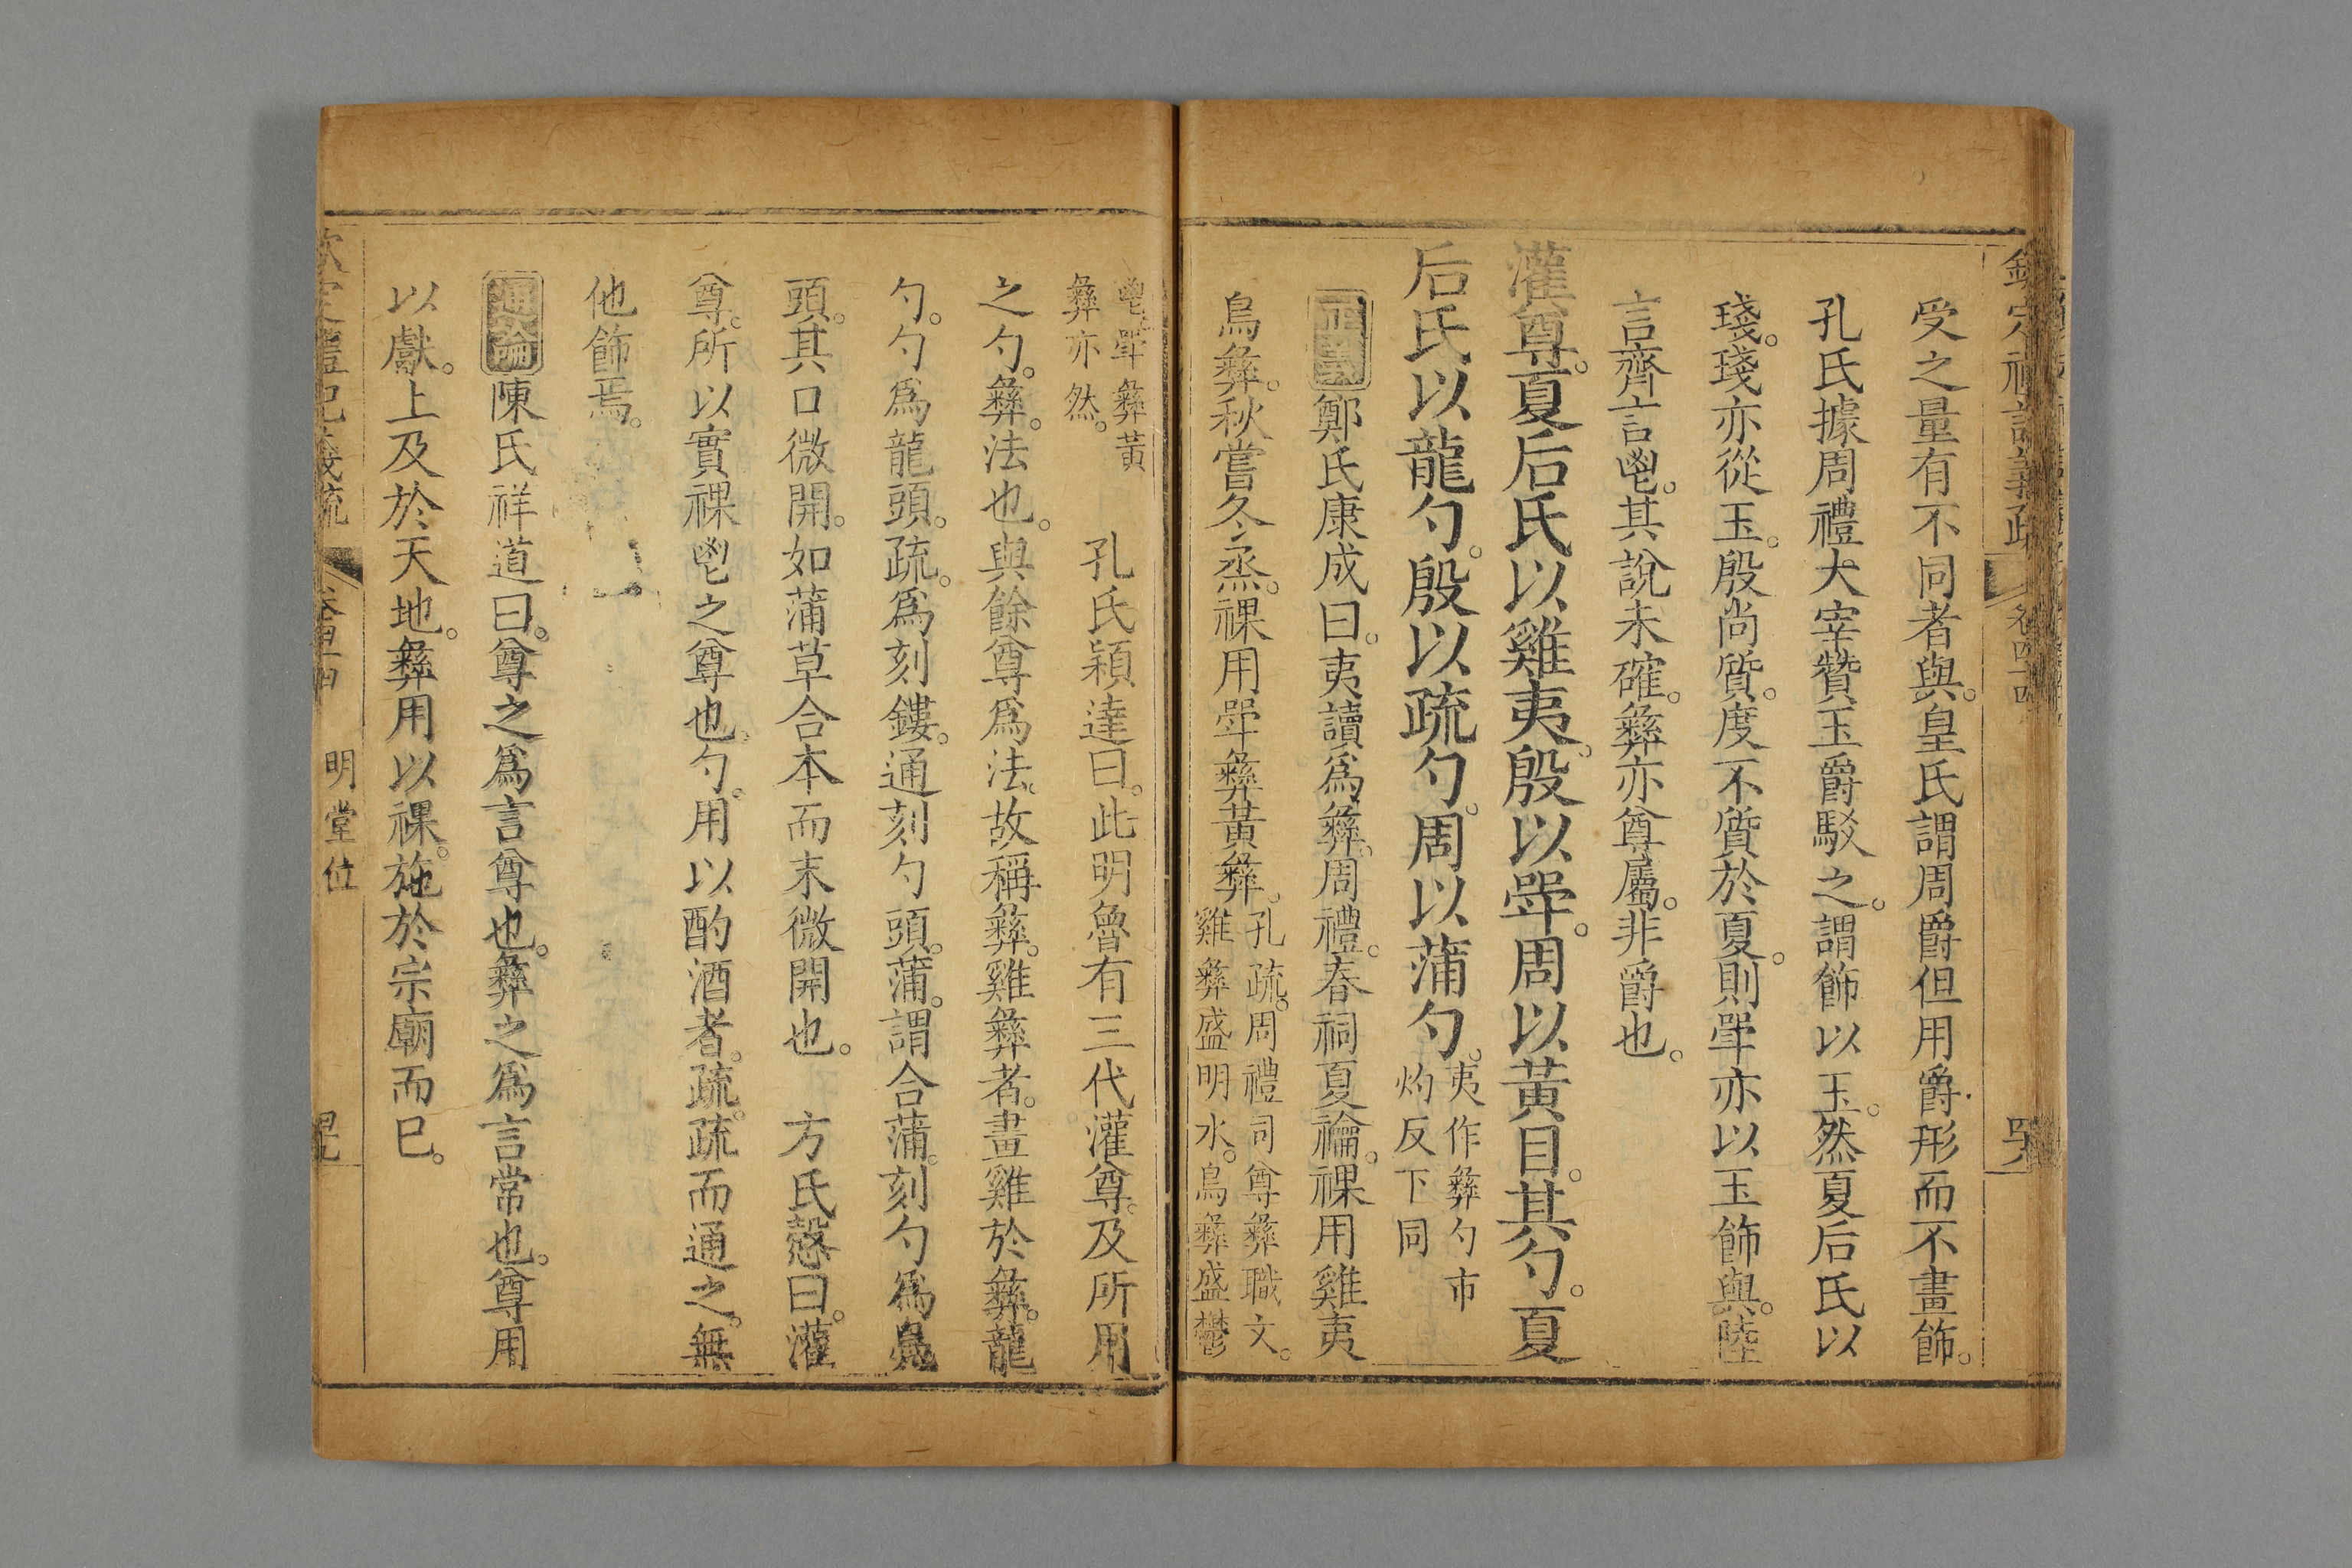 受之量有不同者與。皇氏謂周爵但用爵形而不畫飾。
孔氏據周禮大宰贊玉爵駁之。謂飾以玉。然夏后氏以
琖。琖亦從玉。殷尚質。度不質於夏。則斝亦以玉飾與。陸
言齊言鬯。其說未確。彝亦尊屬。非爵也。
灌尊。夏后氏以雞夷。殷以斝。周以黃目。其勺。夏
后氏以龍勺。殷以疏勺。周以蒲勺。
夷作彝勺市
灼反下同
正義鄭氏康成曰。夷讀爲彝。周禮。春祠夏禴。祼用雞夷
鳥彝。秋嘗冬烝。祼用斝彝黃彝。
孔疏。周禮司尊彝職文。
雞彝盛明水。鳥彝盛鬱
鬯。斝彝黃
彝亦然。
孔氏穎達曰。此明魯有三代灌尊。及所用
之勺。彝。法也。與餘尊爲法。故稱彝。雞彝者。畫雞於彝。龍
勺。勺爲龍頭。疏。爲刻鏤。通刻勺頭。蒲。謂合蒲。刻勺爲鳧
頭。其口微開。如蒲草合本而末微開也。　方氏慤曰。灌
尊。所以實祼鬯之尊也。勺。用以酌酒者。疏。疏而通之。無
他飾焉。
通論陳氏祥道曰。尊之爲言尊也。彝之爲言常也。尊用
以獻。上及於天地。彝用以祼。施於宗廟而已。
明堂位